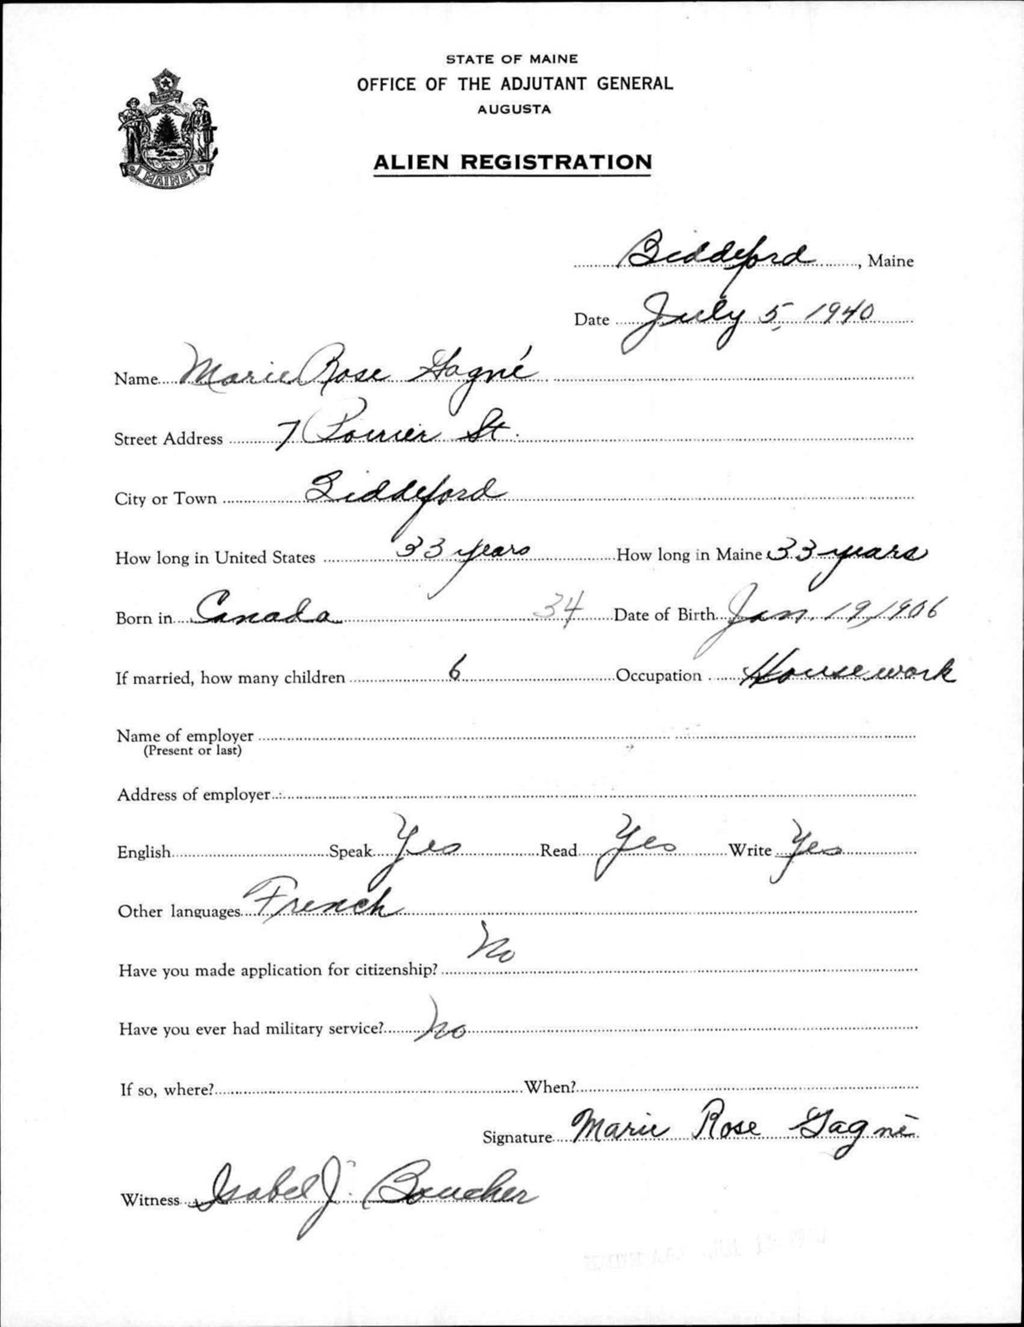 STATE OF MAINE
OFFICE OF THE ADJUTANT GENERAL
AUGUSTA
ALIEN REGISTRATION
MAINE
Biddeford, Maine
Date July 5, 1940
Name Marie Rose Gagné
Street Address 7 Poirier St.
City or Town Biddeford
How long in United States 33 years How long in Maine 33 years
Born in Canada 34 Date of Birth Jan. 19, 1906
If married, how many children 6 Occupation Housework
Name of employer
(Present or last)
Address of employer
English Speak Yes Read Yes Write Yes
Other languages French
Have you made application for citizenship? No
Have you ever had military service? No
If so, where? When?
Signature Marie Rose Gagné
Witness Isabel J. Boucher